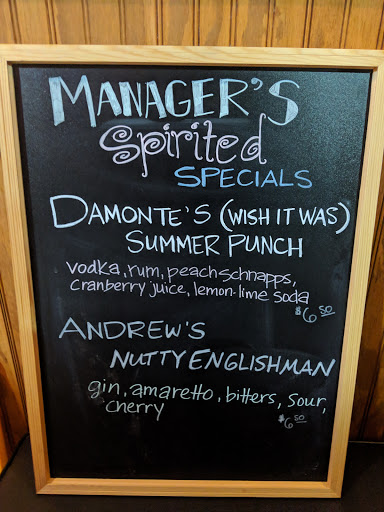 MANAGER'S
Spirited
SPECIALS
DAMONTE'S (WISH IT WAS)
SUMMER PUNCH
vodka, rum, peach schnapps,
cranberry juice, lemon-lime soda
$6.50
ANDREW'S
NUTTY ENGLISHMAN
gin, amaretto, bitters, sour,
cherry
$6.50